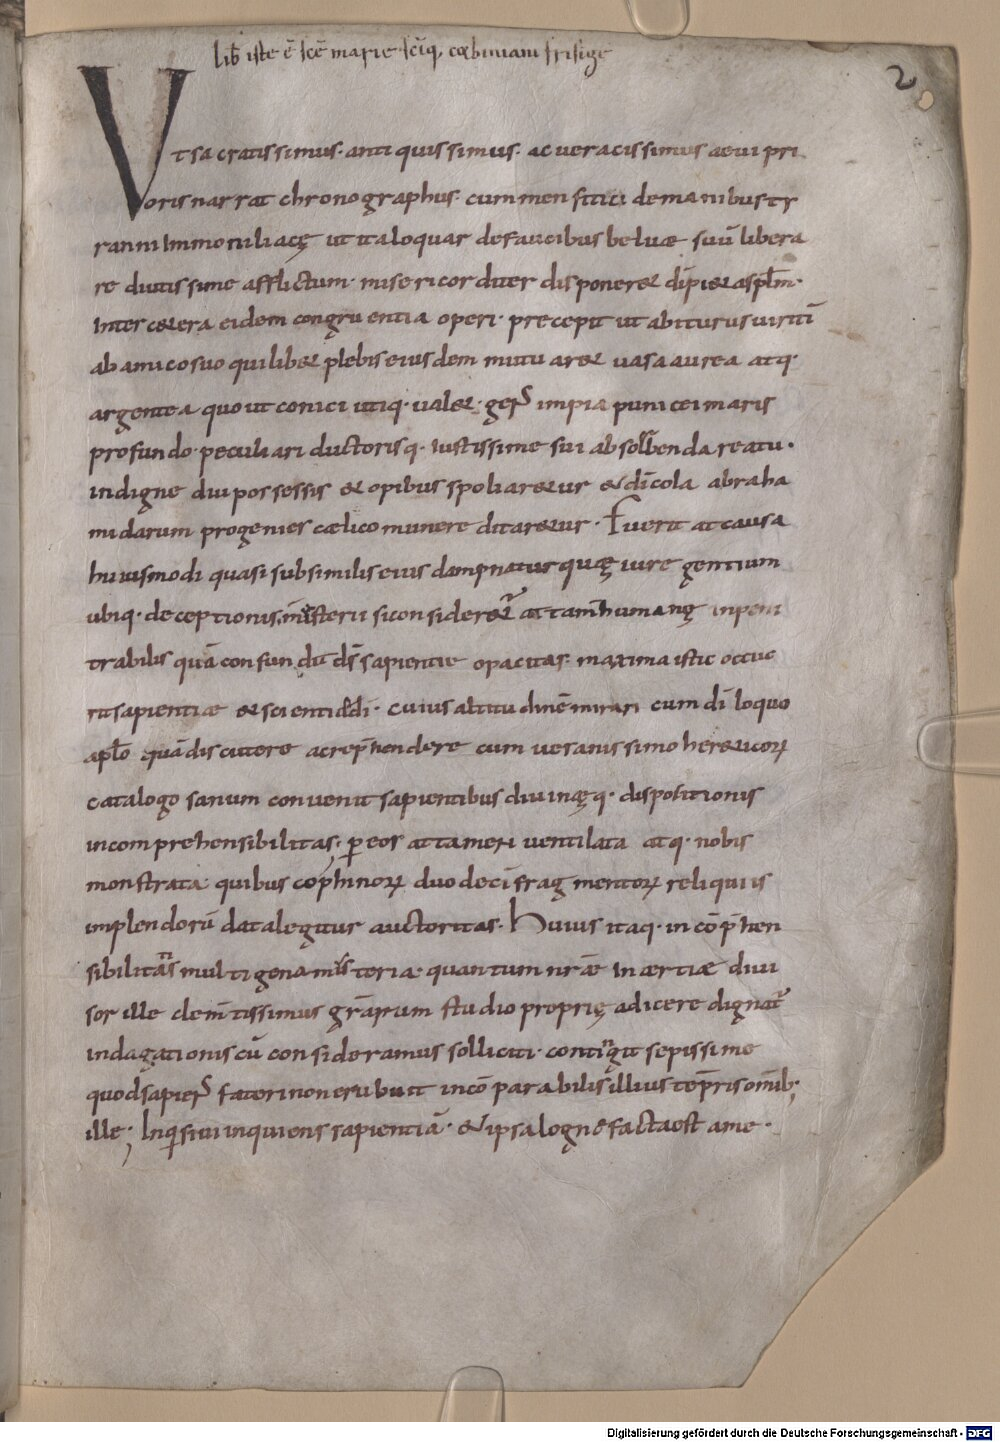 lib̄ iste ē scē marie scīq, corbiniani frisige
2
Ut sacratissimus. antiquissimus. ac veracissimus aevi pri
oris narrat chronographus. cum memfitici de manibus ty
ranni immo niliacę ut ita loquar de faucibus beluae suū libera
re diutissime afflictum. misericorditer disponeret d̄s pietas pl̄m.
Inter cetera eidem congruentia operi. precepit ut abiturus viritī
ab amico suo quilibet plebis eiusdem mutuaret vasa aurea atq.
argentea quo ut conici utiq. valet. gens impia punicei maris
profundo. peculiari ductorisq. iustissime sui absolvenda reatu.
indigne diu possessis et opibus spoliaretur et dīcola abraha
midarum progenies caelico munere ditaretur. Fuerit at causa
huiusmodi quasi subsimilis eius dampnatur quae iure gentium
ubiq. deceptionis. misterii si consideretur attam̄ humanę inpeni
trabilis quā confundū d̄s sapientie opacitas. maxima istic occuc
rit sapientiae et scienti d̄di. cuius altitudinē mirari cum dī loquo
apl̄o quā discutere ac rep̄hendere cum vesanissimo hereticoꝝ
catalogo sanum convenit sapientibus divinaęq. dispositionis
incomprehensibilitas. p̱ eos attamen ventilata atq. nobis
monstrata. quibus cop̄hinoꝝ duodecī fragmentoꝝ reliquiis
implendorū data legitur auctoritas. Huius itaq. incōp̄hen
sibilitatis multigena misteria. quantum nr̄ae inertiae divi
sor ille clem̄tissimus gr̄arum studio proprię adicere dignat̄
indagationis cū consideramus solliciti. contingit sepissime
quod sapiens fateri non erubuit incōparabilis illius tēpris omīb;
ille; Inquisivi inquiens sapientiā. et ipsa longe facta est a me.
Digitalisierung gefördert durch die Deutsche Forschungsgemeinschaft - DFG